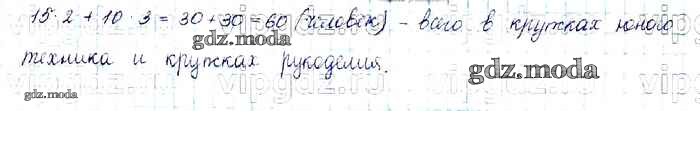 15·2 + 10·3 = 30 + 30 = 60 (человек) - всего в кружках юного
техника и кружках рукоделия.
gdz.moda
gdz.moda
gdz.moda
vipgdz.ru